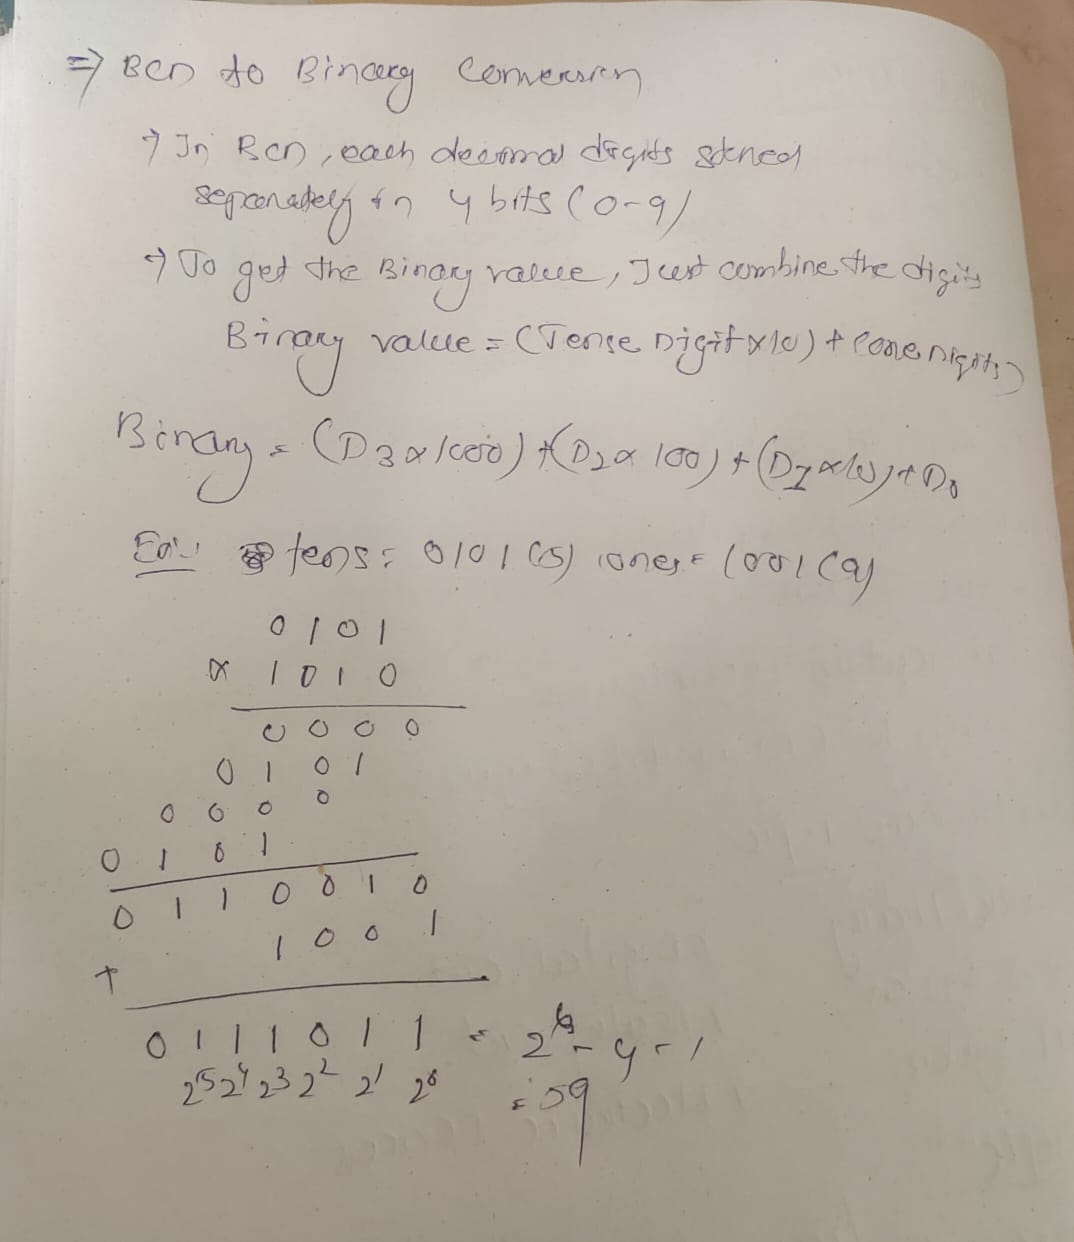 ⇒ BCD to Binary Conversion
→ In BCD, each decimal digits stored
separately in 4 bits (0-9)
→ To get the Binary value, Just combine the digits
Binary value = (Tense Digit x10) + (one Digits)
Binary = (D3 x 1000) + (D2 x 100) + (D1 x 10) + D0
tens = 0101 (5) ones = 1001 (9)
0 1 0 1
x 1 0 1 0
0 0 0 0
0 1 0 1
0 0 0 0
0 1 0 1
0 1 1 0 0 1 0
1 0 0 1
+
0 1 1 1 0 1 1 = 2^6 - 4 - 1
2^5 2^4 2^3 2^2 2^1 2^0 = 59